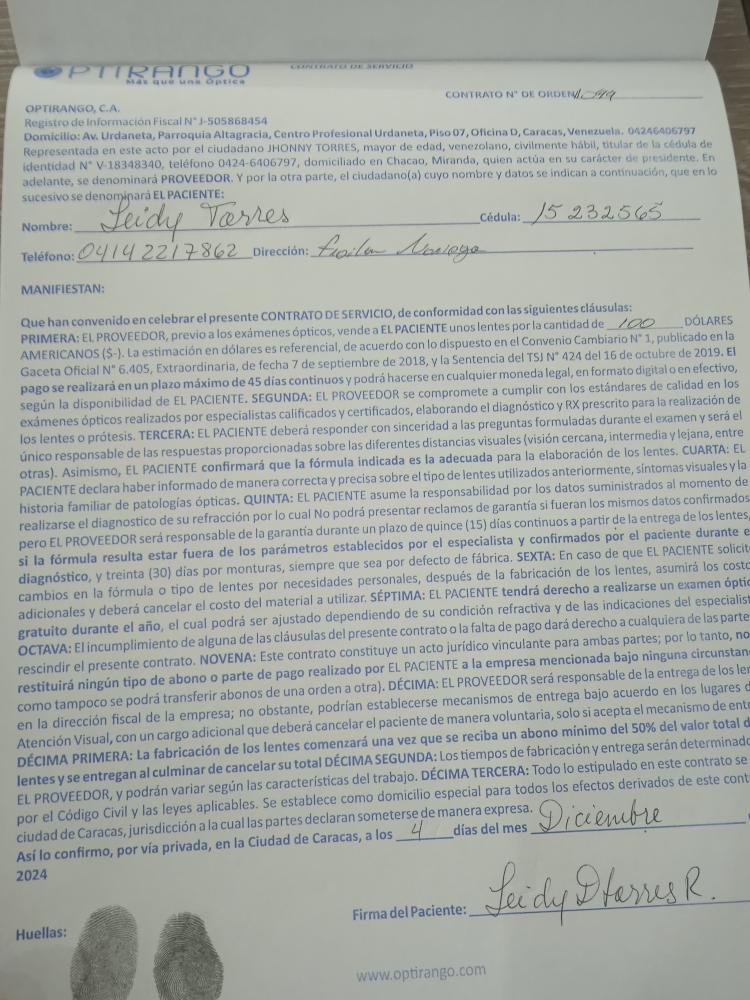 OPTIRANGO
Más que una Óptica
CONTRATO DE SERVICIO
CONTRATO N° DE ORDEN
OPTIRANGO, C.A.
Registro de Información Fiscal N° J-505868454
Domicilio: Av. Urdaneta, Parroquia Altagracia, Centro Profesional Urdaneta, Piso 07, Oficina D, Caracas, Venezuela. 04246406797
Representada en este acto por el ciudadano JHONNY TORRES, mayor de edad, venezolano, civilmente hábil, titular de la cédula de
identidad N° V-18348340, teléfono 0424-6406797, domiciliado en Chacao, Miranda, quien actúa en su carácter de presidente. En
adelante, se denominará PROVEEDOR. Y por la otra parte, el ciudadano(a) cuyo nombre y datos se indican a continuación, que en lo
sucesivo se denominará EL PACIENTE:
Nombre: Leidy Torres Cédula: 15 232565
Teléfono: 04142217862 Dirección:
MANIFIESTAN:
Que han convenido en celebrar el presente CONTRATO DE SERVICIO, de conformidad con las siguientes cláusulas:
PRIMERA: EL PROVEEDOR, previo a los exámenes ópticos, vende a EL PACIENTE unos lentes por la cantidad de 100 DÓLARES
AMERICANOS ($-). La estimación en dólares es referencial, de acuerdo con lo dispuesto en el Convenio Cambiario N° 1, publicado en la
Gaceta Oficial N° 6.405, Extraordinaria, de fecha 7 de septiembre de 2018, y la Sentencia del TSJ N° 424 del 16 de octubre de 2019. El
pago se realizará en un plazo máximo de 45 días continuos y podrá hacerse en cualquier moneda legal, en formato digital o en efectivo,
según la disponibilidad de EL PACIENTE. SEGUNDA: EL PROVEEDOR se compromete a cumplir con los estándares de calidad en los
exámenes ópticos realizados por especialistas calificados y certificados, elaborando el diagnóstico y RX prescrito para la realización de
los lentes o prótesis. TERCERA: EL PACIENTE deberá responder con sinceridad a las preguntas formuladas durante el examen y será el
único responsable de las respuestas proporcionadas sobre las diferentes distancias visuales (visión cercana, intermedia y lejana, entre
otras). Asimismo, EL PACIENTE confirmará que la fórmula indicada es la adecuada para la elaboración de los lentes. CUARTA: EL
PACIENTE declara haber informado de manera correcta y precisa sobre el tipo de lentes utilizados anteriormente, síntomas visuales y la
historia familiar de patologías ópticas. QUINTA: EL PACIENTE asume la responsabilidad por los datos suministrados al momento de
realizarse el diagnostico de su refracción por lo cual No podrá presentar reclamos de garantía si fueran los mismos datos confirmados
pero EL PROVEEDOR será responsable de la garantía durante un plazo de quince (15) días continuos a partir de la entrega de los lentes,
si la fórmula resulta estar fuera de los parámetros establecidos por el especialista y confirmados por el paciente durante e
diagnóstico, y treinta (30) días por monturas, siempre que sea por defecto de fábrica. SEXTA: En caso de que EL PACIENTE solicit
cambios en la fórmula o tipo de lentes por necesidades personales, después de la fabricación de los lentes, asumirá los costo
adicionales y deberá cancelar el costo del material a utilizar. SÉPTIMA: EL PACIENTE tendrá derecho a realizarse un examen óptic
gratuito durante el año, el cual podrá ser ajustado dependiendo de su condición refractiva y de las indicaciones del especialist
OCTAVA: El incumplimiento de alguna de las cláusulas del presente contrato o la falta de pago dará derecho a cualquiera de las parte
rescindir el presente contrato. NOVENA: Este contrato constituye un acto jurídico vinculante para ambas partes; por lo tanto, no
restituirá ningún tipo de abono o parte de pago realizado por EL PACIENTE a la empresa mencionada bajo ninguna circunstan
como tampoco se podrá transferir abonos de una orden a otra). DÉCIMA: EL PROVEEDOR será responsable de la entrega de los len
en la dirección fiscal de la empresa; no obstante, podrían establecerse mecanismos de entrega bajo acuerdo en los lugares d
Atención Visual, con un cargo adicional que deberá cancelar el paciente de manera voluntaria, solo si acepta el mecanismo de entr
DÉCIMA PRIMERA: La fabricación de los lentes comenzará una vez que se reciba un abono minimo del 50% del valor total d
lentes y se entregan al culminar de cancelar su total DÉCIMA SEGUNDA: Los tiempos de fabricación y entrega serán determinado
EL PROVEEDOR, y podrán variar según las características del trabajo. DÉCIMA TERCERA: Todo lo estipulado en este contrato se
por el Código Civil y las leyes aplicables. Se establece como domicilio especial para todos los efectos derivados de este cont
ciudad de Caracas, jurisdicción a la cual las partes declaran someterse de manera expresa.
Así lo confirmo, por vía privada, en la Ciudad de Caracas, a los 4 días del mes Diciembre
2024
Firma del Paciente: Leidy D Torres R.
Huellas:
www.optirango.com